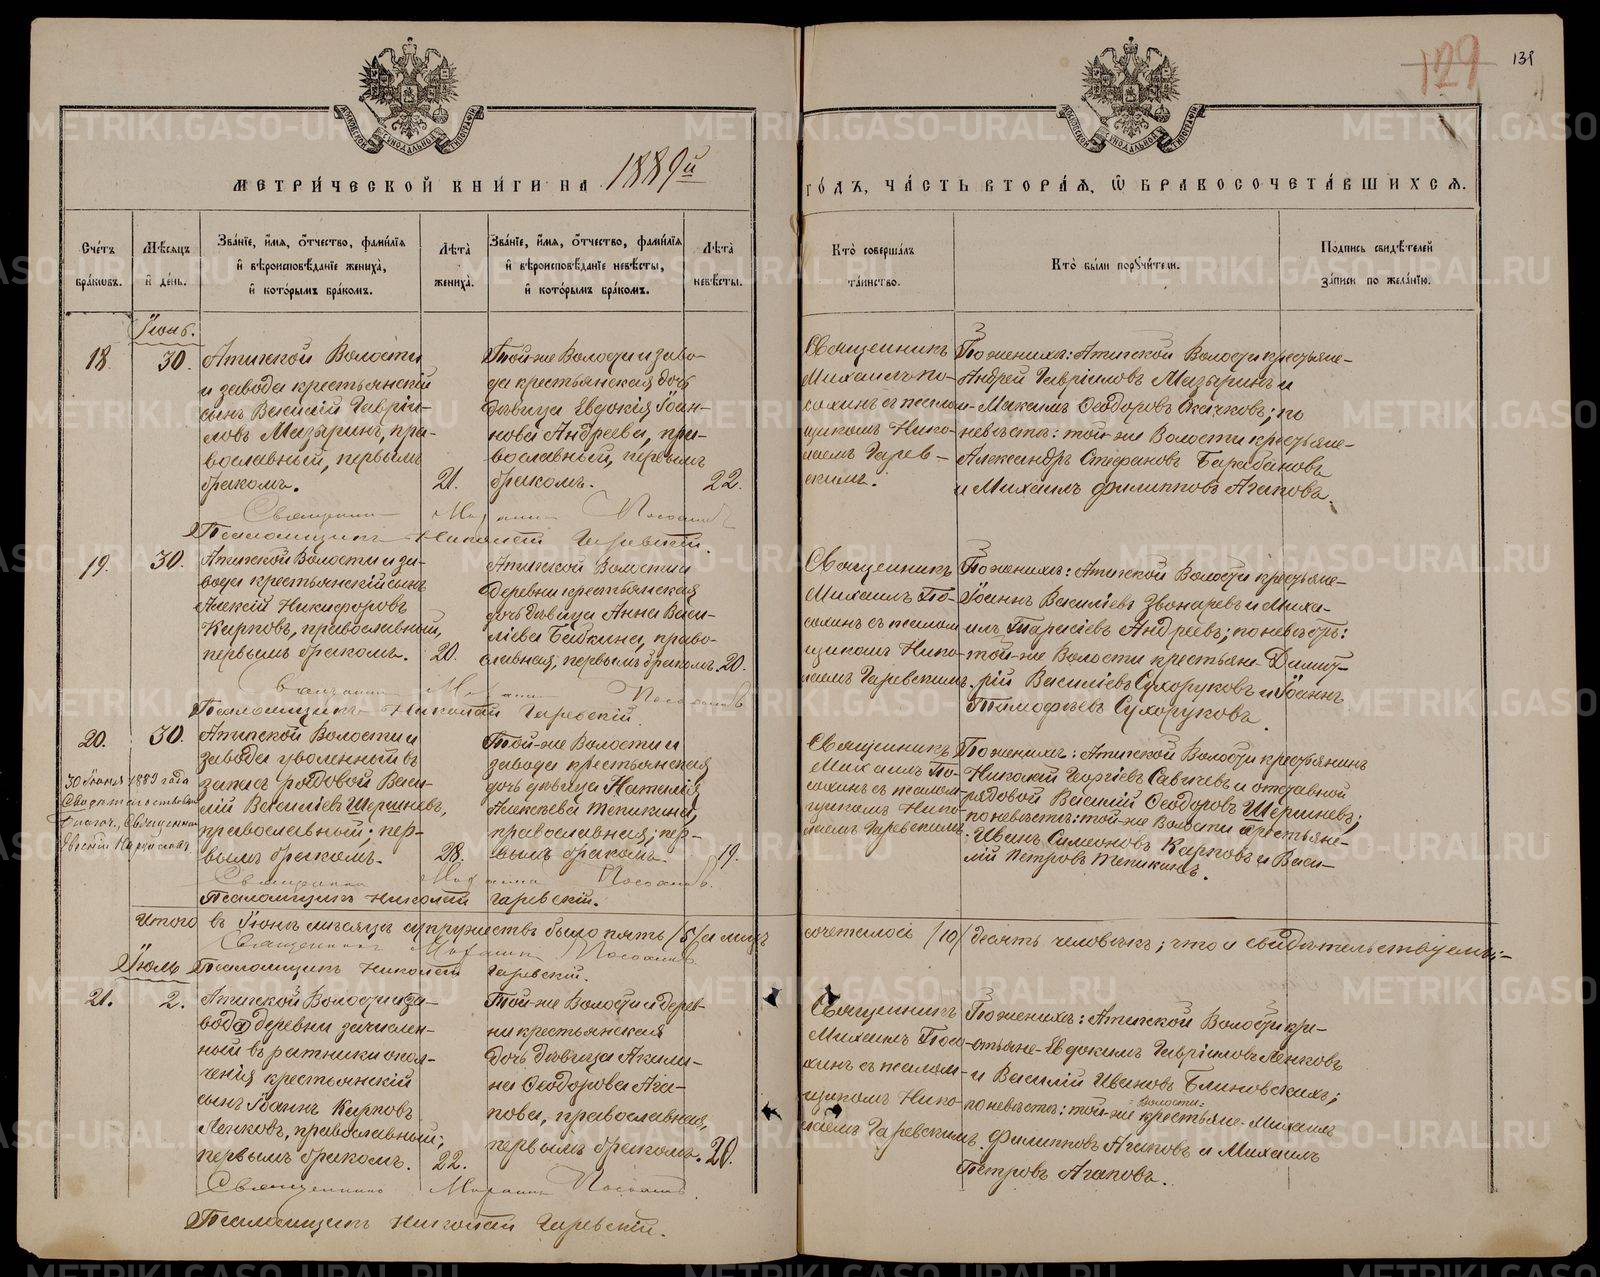 129
131
МЕТРИ́ЧЕСКОЙ КНИ́ГИ НА 1889й ГО́ДЪ, ЧА́СТЬ ВТОРА́Я, Ѿ БРАКОСОЧЕТА́ВШИХСЯ.
Сче́тъ бра́ковъ.
Мѣ́сяцъ и҆ де́нь.
Зва́нїе, и҆́мя, ѻ҆́тчество, фами́лїя и҆ вѣроисповѣ́данїе жениха̀, и҆ кото́рымъ бра́комъ.
Лѣ́та жениха̀.
Зва́нїе, и҆́мя, ѻ҆́тчество, фами́лїя и҆ вѣроисповѣ́данїе невѣ́сты, и҆ кото́рымъ бра́комъ.
Лѣ́та невѣ́сты.
Кто̀ соверша́лъ та́инство.
Кто̀ бы́ли порꙋчи́тели.
Подпись свидѣ́телей за́писи по жела́нїю.
Іюнь.
18.
30.
Атигской Волости
и завода крестьянскій
сынъ Василій Гаврі-
ловъ Мазыринъ, пра-
вославный, первымъ
бракомъ.
21.
Той-же Волости и заво-
да крестьянская дочь
дѣвица Евдокія Іоан-
нова Андреева, пра-
вославный, первымъ
бракомъ.
22.
Священникъ
Михаилъ По-
сохинъ съ псалом-
щикомъ Нико-
лаемъ Гарев-
скимъ.
По женихѣ: Атигской Волости крестьяне-
Андрей Гавріиловъ Мазыринъ и
Максимъ Ѳеодоровъ Скачковъ; по
невѣстѣ: той-же Волости крестьяне-
Александръ Стефановъ Барабановъ
и Михаилъ Филипповъ Агаповъ.
Священникъ Михаилъ Посохинъ
Псаломщикъ Николай Гаревскій.
19.
30.
Атигской Волости и за-
вода крестьянскій сынъ
Алексій Никифоровъ
Карповъ, православный,
первымъ бракомъ.
20.
Атигской Волости и
деревни крестьянская
дочь дѣвица Анна Васи-
ліева Бабкина, право-
славная, первымъ бракомъ.
20.
Священникъ
Михаилъ По-
сохинъ съ псалом-
щикомъ Нико-
лаемъ Гаревскимъ.
По женихѣ: Атигской Волости крестьяне-
Іоаннъ Василіевъ Звонаревъ и Миха-
илъ Тарасіевъ Андреевъ; по невѣстѣ:
той-же Волости крестьяне Димит-
рій Василіевъ Сухоруковъ и Іоаннъ
Тимофѣевъ Сухоруковъ.
Священникъ Михаилъ Посохинъ
Псаломщикъ Николай Гаревскій.
20.
30.
30 Іюня 1889 года
Свидетельствовалъ
Благоч., Священникъ
Атигской Волости и
завода уволенный въ
запасъ рядовой Васи-
лій Василіевъ Шершневъ,
православной; пер-
вымъ бракомъ.
28.
Той-же Волости и
завода крестьянская
дочь дѣвица Наталія
Алексѣева Тепикина,
православная; пер-
вымъ бракомъ.
19.
Священникъ
Михаилъ По-
сохинъ съ псалом-
щикомъ Нико-
лаемъ Гаревскимъ.
По женихѣ: Атигской Волости крестьянинъ
Николай Георгіевъ Савичевъ и отставной
рядовой Василій Ѳеодоровъ Шершневъ;
по невѣстѣ: той-же Волости крестьяне-
Иванъ Симеоновъ Карповъ и Васи-
лій Петровъ Тепикинъ.
Священникъ Михаилъ Посохинъ
Псаломщикъ Николай Гаревскій.
Итого въ Іюнѣ мѣсяцѣ супружествъ было пять /5/ а лицъ сочеталось /10/ десять человѣкъ; что и свидѣтельствуемъ:-
Священникъ Михаилъ Посохинъ
Псаломщикъ Николай Гаревскій.
Іюль
21.
2.
Атигской Волости и за-
вода деревни зачислен-
ный въ ратники опол-
ченія крестьянскій
сынъ Іоаннъ Карповъ
Ленковъ, православный;
первымъ бракомъ.
22.
Той-же Волости и дерев-
ни крестьянская
дочь дѣвица Акили-
на Ѳеодорова Ага-
пова, православная,
первымъ бракомъ.
20.
Священникъ
Михаилъ Посо-
хинъ съ псалом-
щикомъ Нико-
лаемъ Гаревскимъ.
По женихѣ: Атигской Волости кре-
стьяне-Евдокимъ Гавріиловъ Ленковъ
и Василій Ивановъ Блиновскихъ;
по невѣстѣ: той-же Волости крестьяне-Михаилъ
Филипповъ Агаповъ и Михаилъ
Петровъ Агаповъ.
Священникъ Михаилъ Посохинъ
Псаломщикъ Николай Гаревскій.